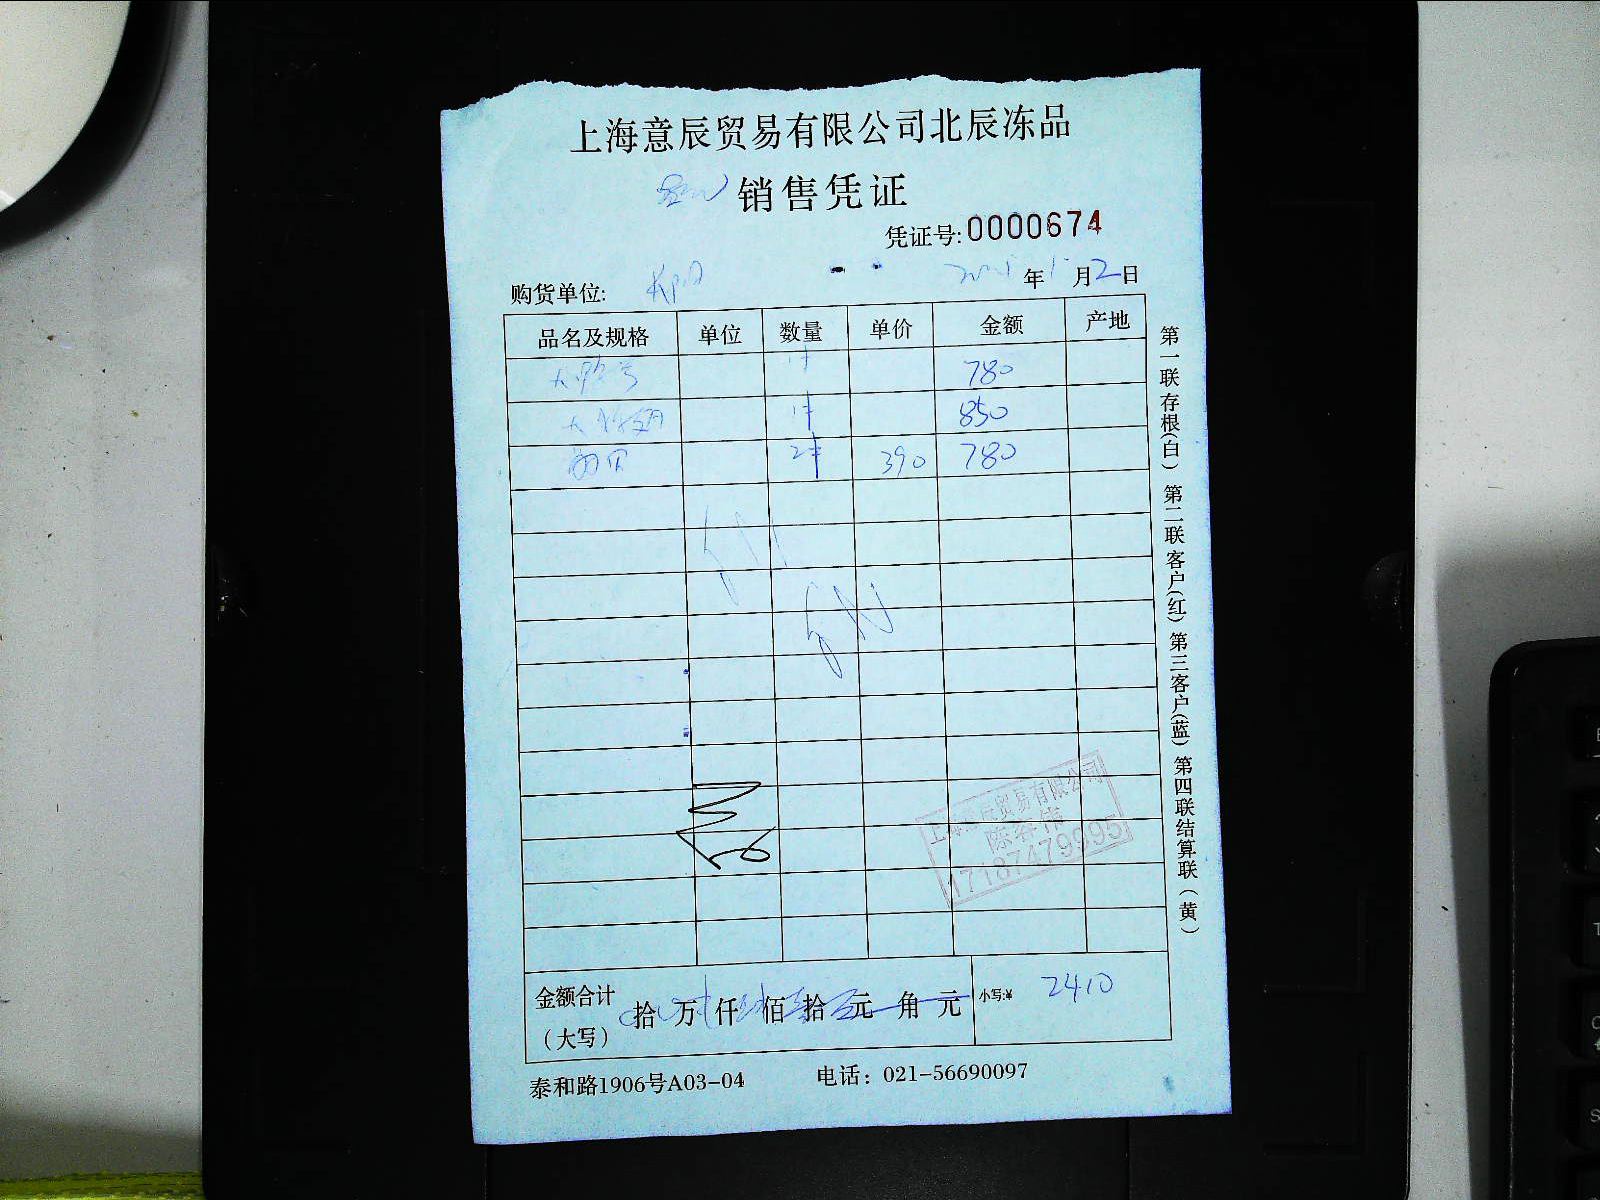 上海意辰贸易有限公司北辰冻品
销售凭证
凭证号:0000674
购货单位: 年 月2日
品名及规格 单位 数量 单价 金额 产地
1件 780
1件 850
2件 390 780
第一联存根(白) 第二联客户(红) 第三客户(蓝) 第四联结算联(黄)
上海意辰贸易有限公司
陈春伟
17187479995
金额合计(大写) 拾 万 仟 佰 拾 元 角 元 小写:¥ 2410
泰和路1906号A03-04 电话:021-56690097